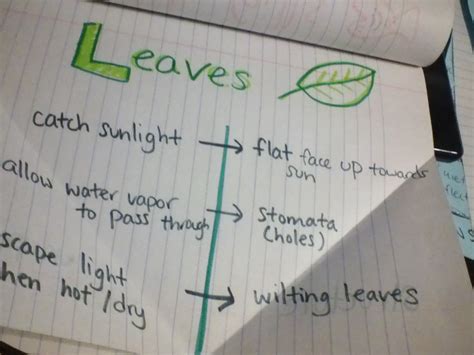 Leaves
catch sunlight → flat face up towards
sun
allow water vapor
to pass through → stomata
(holes)
scape light
hen hot/dry → wilting leaves